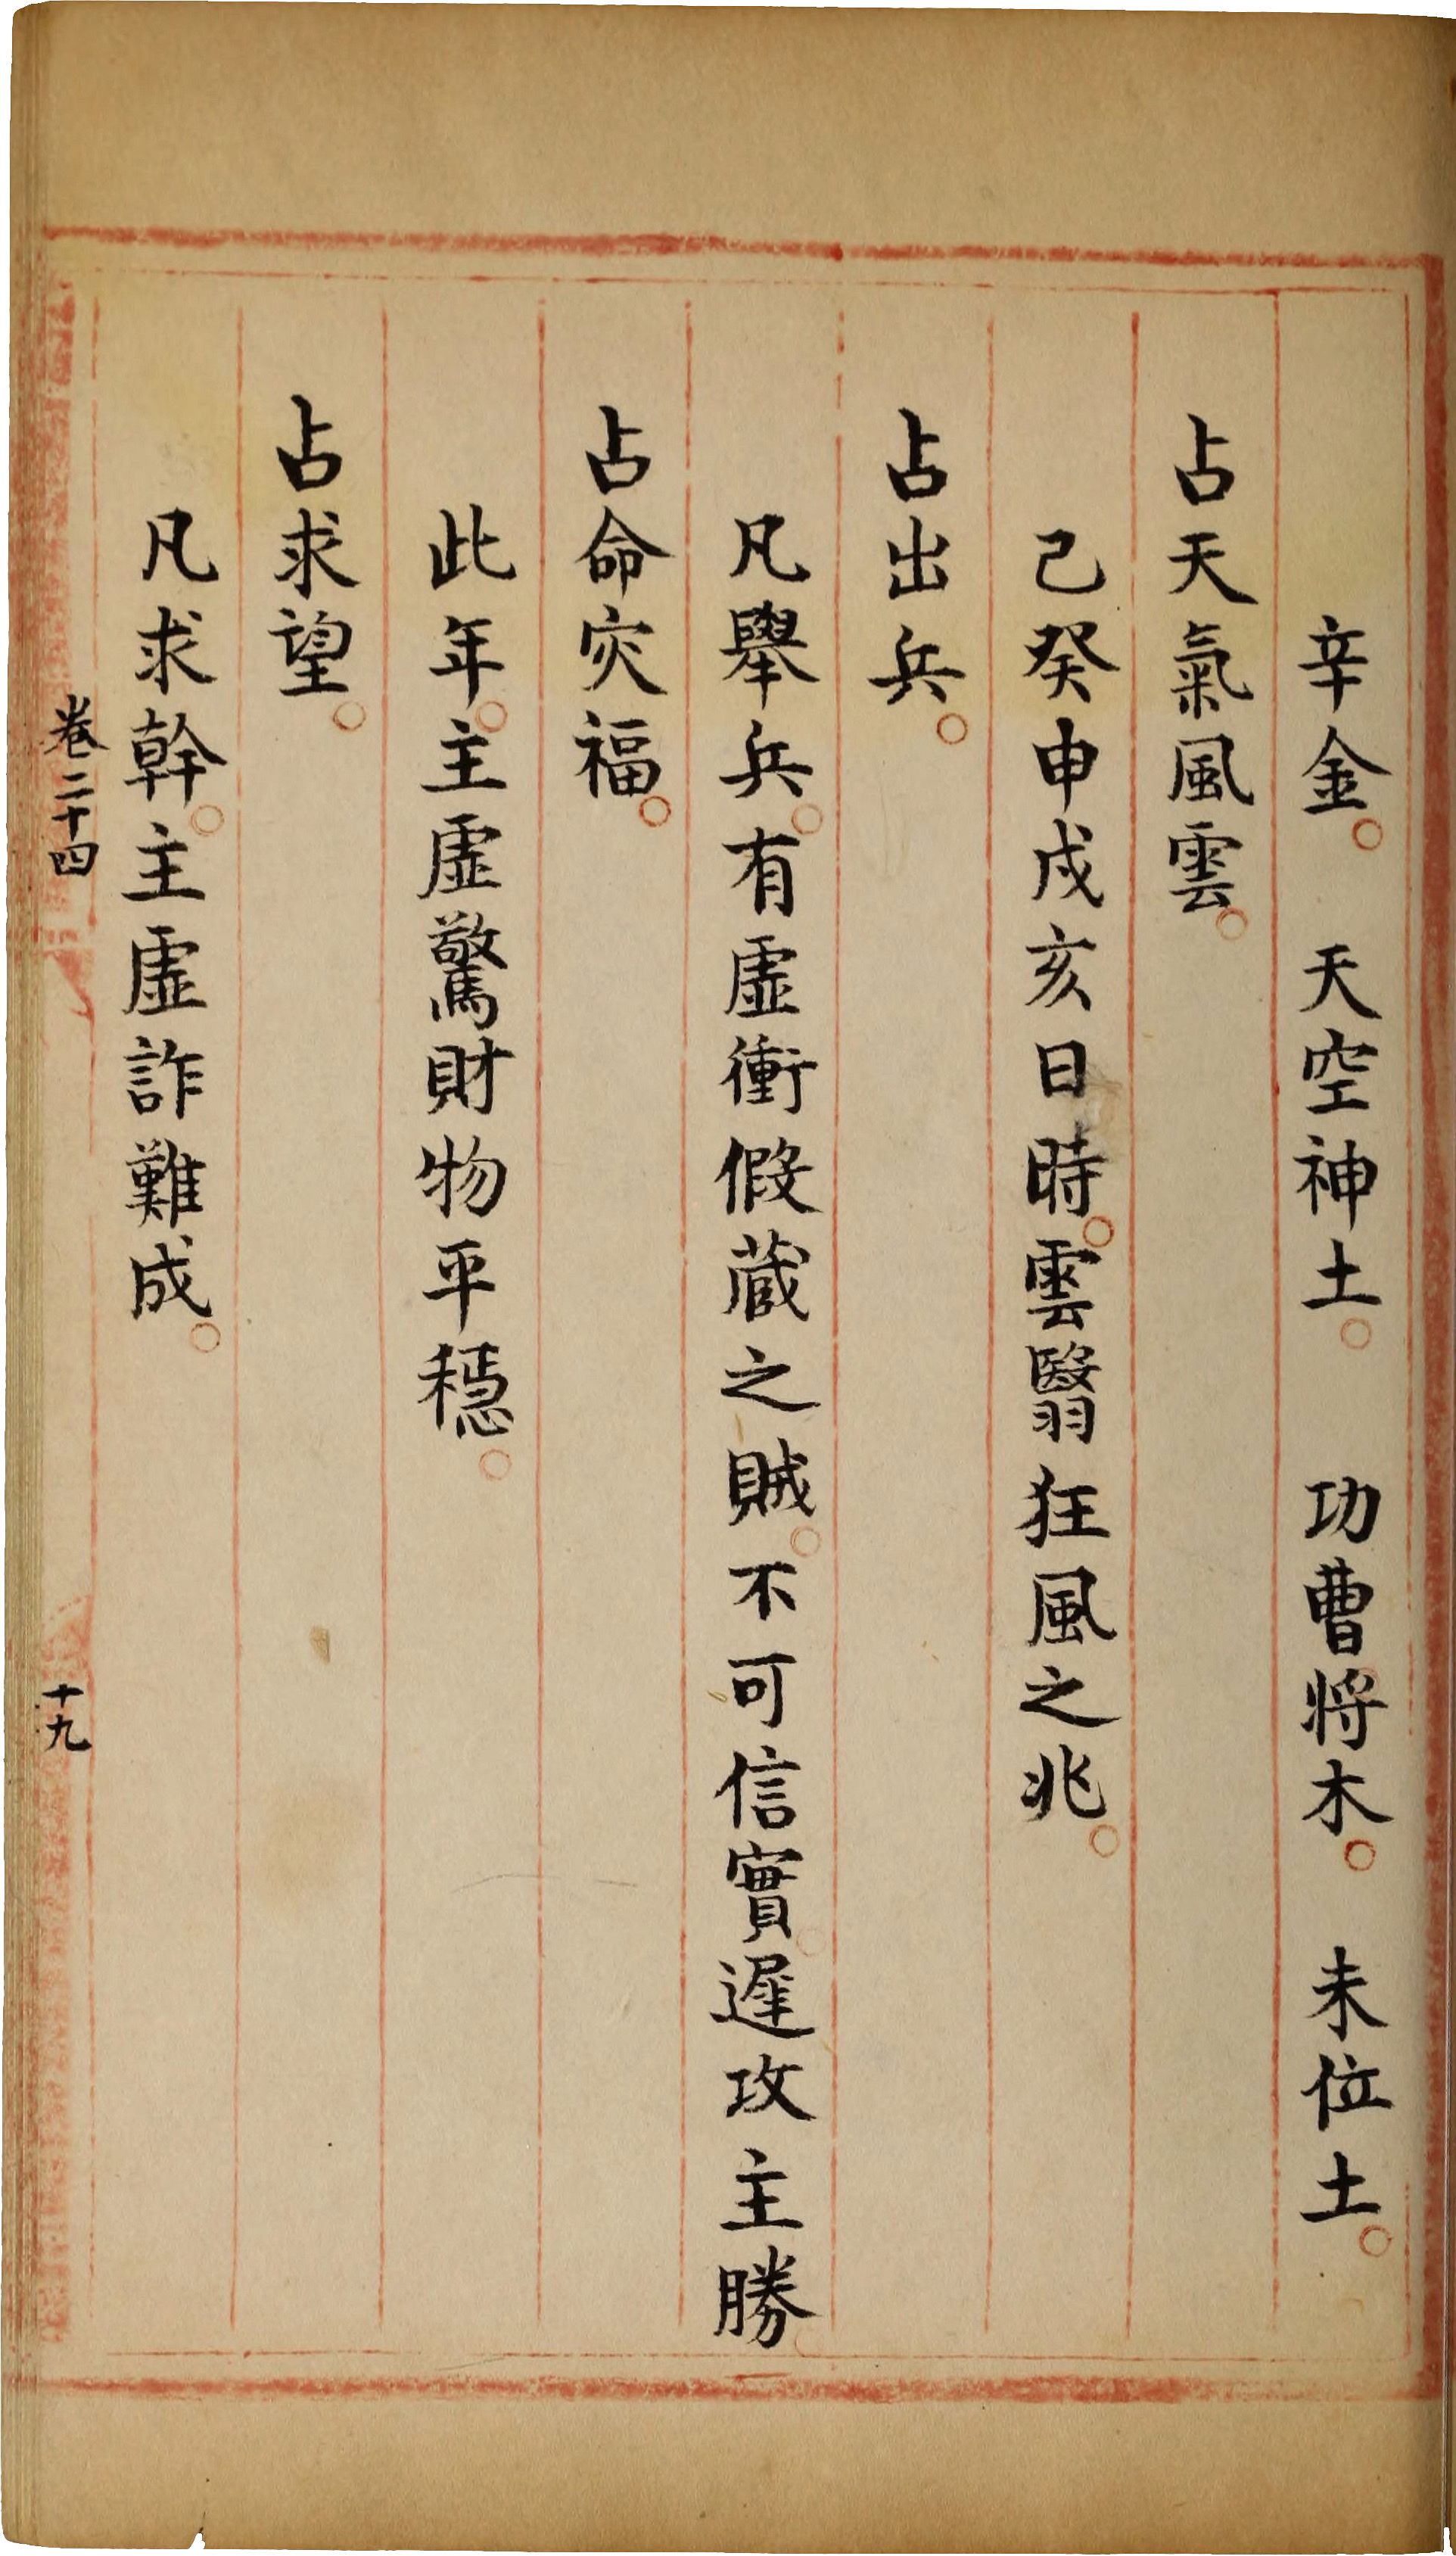 辛金。　天空神土。　功曹将木。　未位土。
占天氣風雲。
己癸申戌亥日時。雲翳狂風之兆。
占出兵。
凡舉兵。有虛衝假蔵之賊。不可信實。遲攻主勝。
占命灾福。
此年。主虛驚財物平穩。
占求望。
凡求幹。主虛詐難成。
卷二十四
十九